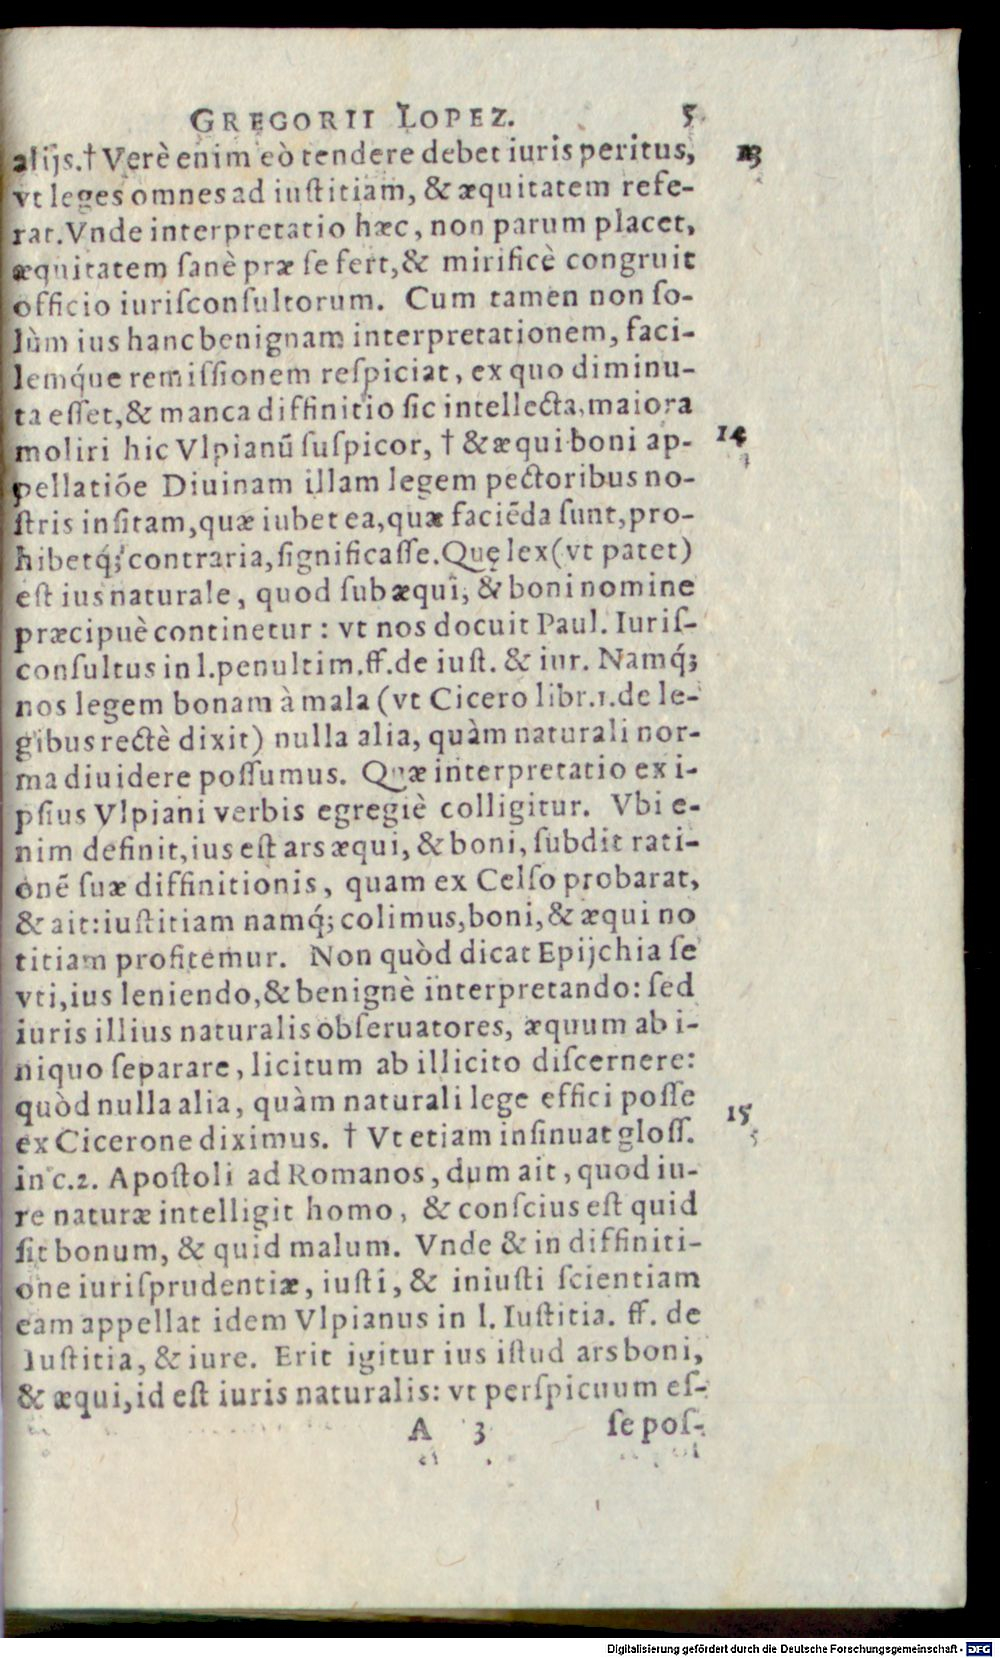 GREGORII LOPEZ. 5
alijs.† Verè enim eò tendere debet iuris peritus, 13
vt leges omnes ad iustitiam, & æquitatem refe-
rat. Vnde interpretatio hæc, non parum placet,
æquitatem sanè præ se fert, & mirificè congruit
officio iurisconsultorum. Cum tamen non so-
lùm ius hanc benignam interpretationem, faci-
lemq́ue remissionem respiciat, ex quo diminu-
ta esset, & manca diffinitio sic intellecta, maiora
moliri hic Vlpianũ suspicor, † & æqui boni ap- 14
pellatiõe Diuinam illam legem pectoribus no-
stris insitam, quæ iubet ea, quæ faciẽda sunt, pro-
hibetq́; contraria, significasse. Quę lex (vt patet)
est ius naturale, quod sub æqui, & boni nomine
præcipuè continetur : vt nos docuit Paul. Iuris-
consultus in l. penultim. ff. de iust. & iur. Namq́;
nos legem bonam à mala (vt Cicero libr.1. de le-
gibus rectè dixit) nulla alia, quàm naturali nor-
ma diuidere possumus. Quæ interpretatio ex i-
psius Vlpiani verbis egregiè colligitur. Vbi e-
nim definit, ius est ars æqui, & boni, subdit rati-
onẽ suæ diffinitionis, quam ex Celso probarat,
& ait: iustitiam namq́; colimus, boni, & æqui no
titiam profitemur. Non quòd dicat Epijchia se
vti, ius leniendo, & benignè interpretando: sed
iuris illius naturalis obseruatores, æquum ab i-
niquo separare, licitum ab illicito discernere:
quòd nulla alia, quàm naturali lege effici posse
ex Cicerone diximus. † Vt etiam insinuat gloss. 15
in c.2. Apostoli ad Romanos, dum ait, quod iu-
re naturæ intelligit homo, & conscius est quid
sit bonum, & quid malum. Vnde & in diffiniti-
one iurisprudentiæ, iusti, & iniusti scientiam
eam appellat idem Vlpianus in l. Iustitia. ff. de
Iustitia, & iure. Erit igitur ius istud ars boni,
& æqui, id est iuris naturalis: vt perspicuum es-
A 3 se pos-
Digitalisierung gefördert durch die Deutsche Forschungsgemeinschaft - DFG